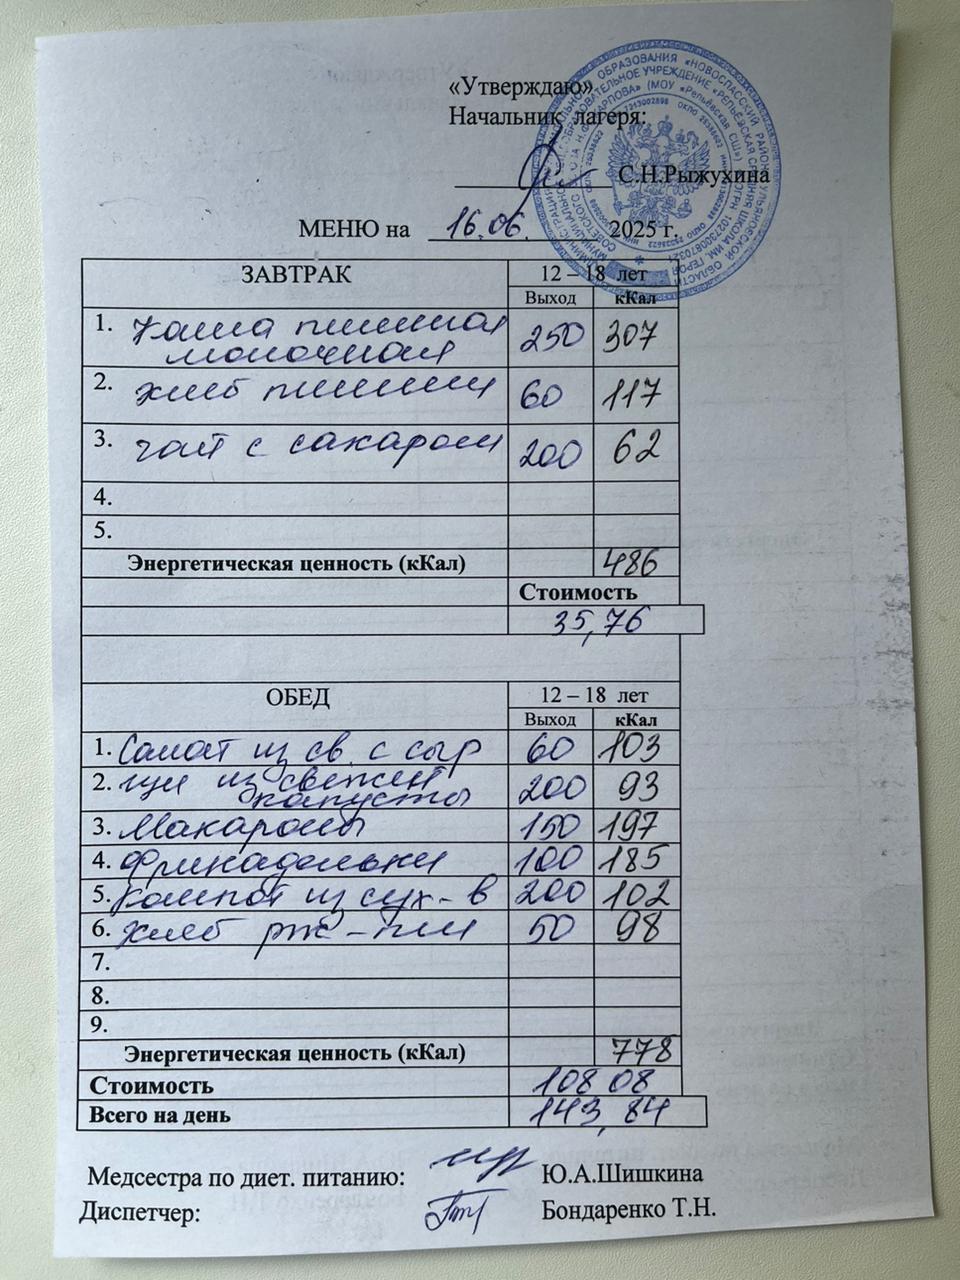 «Утверждаю»
Начальник лагеря:
С.Н.Рыжухина
МЕНЮ на 16.06. 2025 г.
ЗАВТРАК 12 – 18 лет
Выход кКал
1. Каша пшенная 250 307
молочная
2. хлеб пшенич 60 117
3. чай с сахаром 200 62
4.
5.
Энергетическая ценность (кКал) 486
Стоимость
35,76
ОБЕД 12 – 18 лет
Выход кКал
1. Салат из св. с сыр 60 103
2. щи из свежей 200 93
капусты
3. Макароны 150 197
4. Фрикадельки 100 185
5. Компот из сух-в 200 102
6. хлеб рж-пш 50 98
7.
8.
9.
Энергетическая ценность (кКал) 778
Стоимость 108 08
Всего на день 143,84
Медсестра по диет. питанию: Ю.А.Шишкина
Диспетчер: Бондаренко Т.Н.